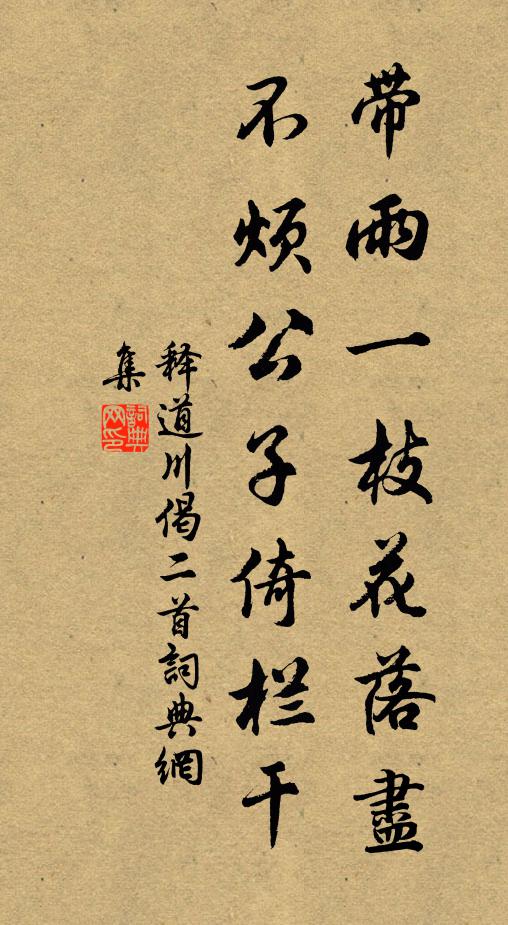 带雨一枝花落盡
不烦公子倚栏干
释道川偈二首詞典網
集
詞典网印